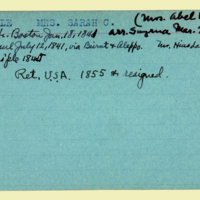 MRS. SARAH C. (Mrs. Abel
Boston Jan. 18, 1841 arr. Smyrna Mar.
July 12, 1841, via Beirut & Aleppo. Mr. Hinsda
1845
Ret. U.S.A. 1855 & resigned.